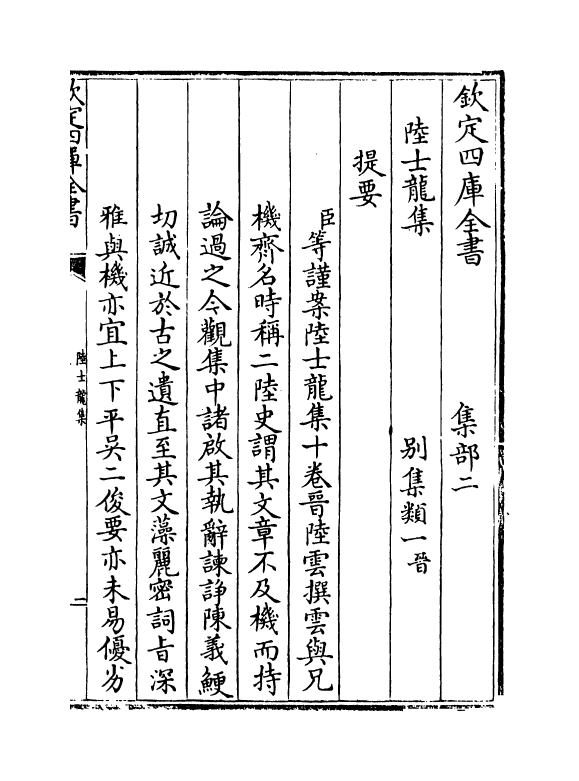 欽定四庫全書　集部二
陸士龍集　別集類一晉
提要
臣等謹案陸士龍集十卷晉陸雲撰雲與兄
機齊名時稱二陸史謂其文章不及機而持
論過之今觀集中諸啟其執辭諫諍陳義鯁
切誠近於古之遺直至其文藻麗密詞旨深
雅與機亦宜上下平吳二俊要亦未易優劣
欽定四庫全書
陸士龍集
二